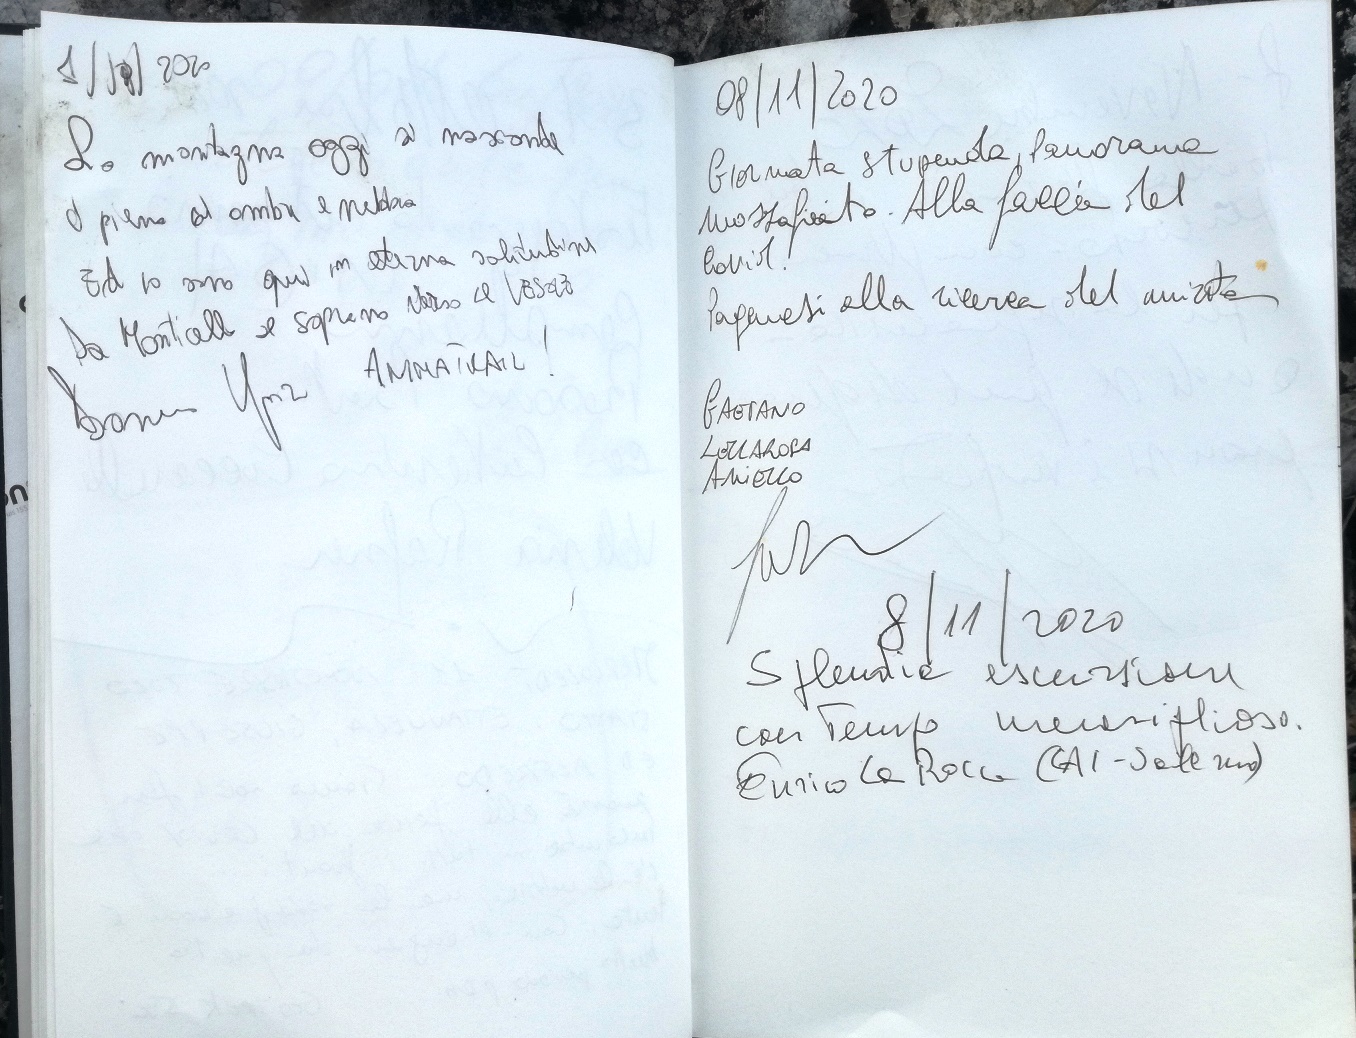 1/11/2020
La montagna oggi si nasconde
è piena di ombre e nebbia
Ed io sono qui in eterna solitudine
Da Monticelli e soprano verso il VESOLE
AMMATRAIL!
08/11/2020
Giornata stupenda, Panorama
mozzafiato. Alla faccia del
Covid!
Paganesi alla ricerca del
GAETANO
ANIELLO
8/11/2020
Splendida escursione
con Tempo meraviglioso.
Enrico La Rocca (CAI-Salerno)